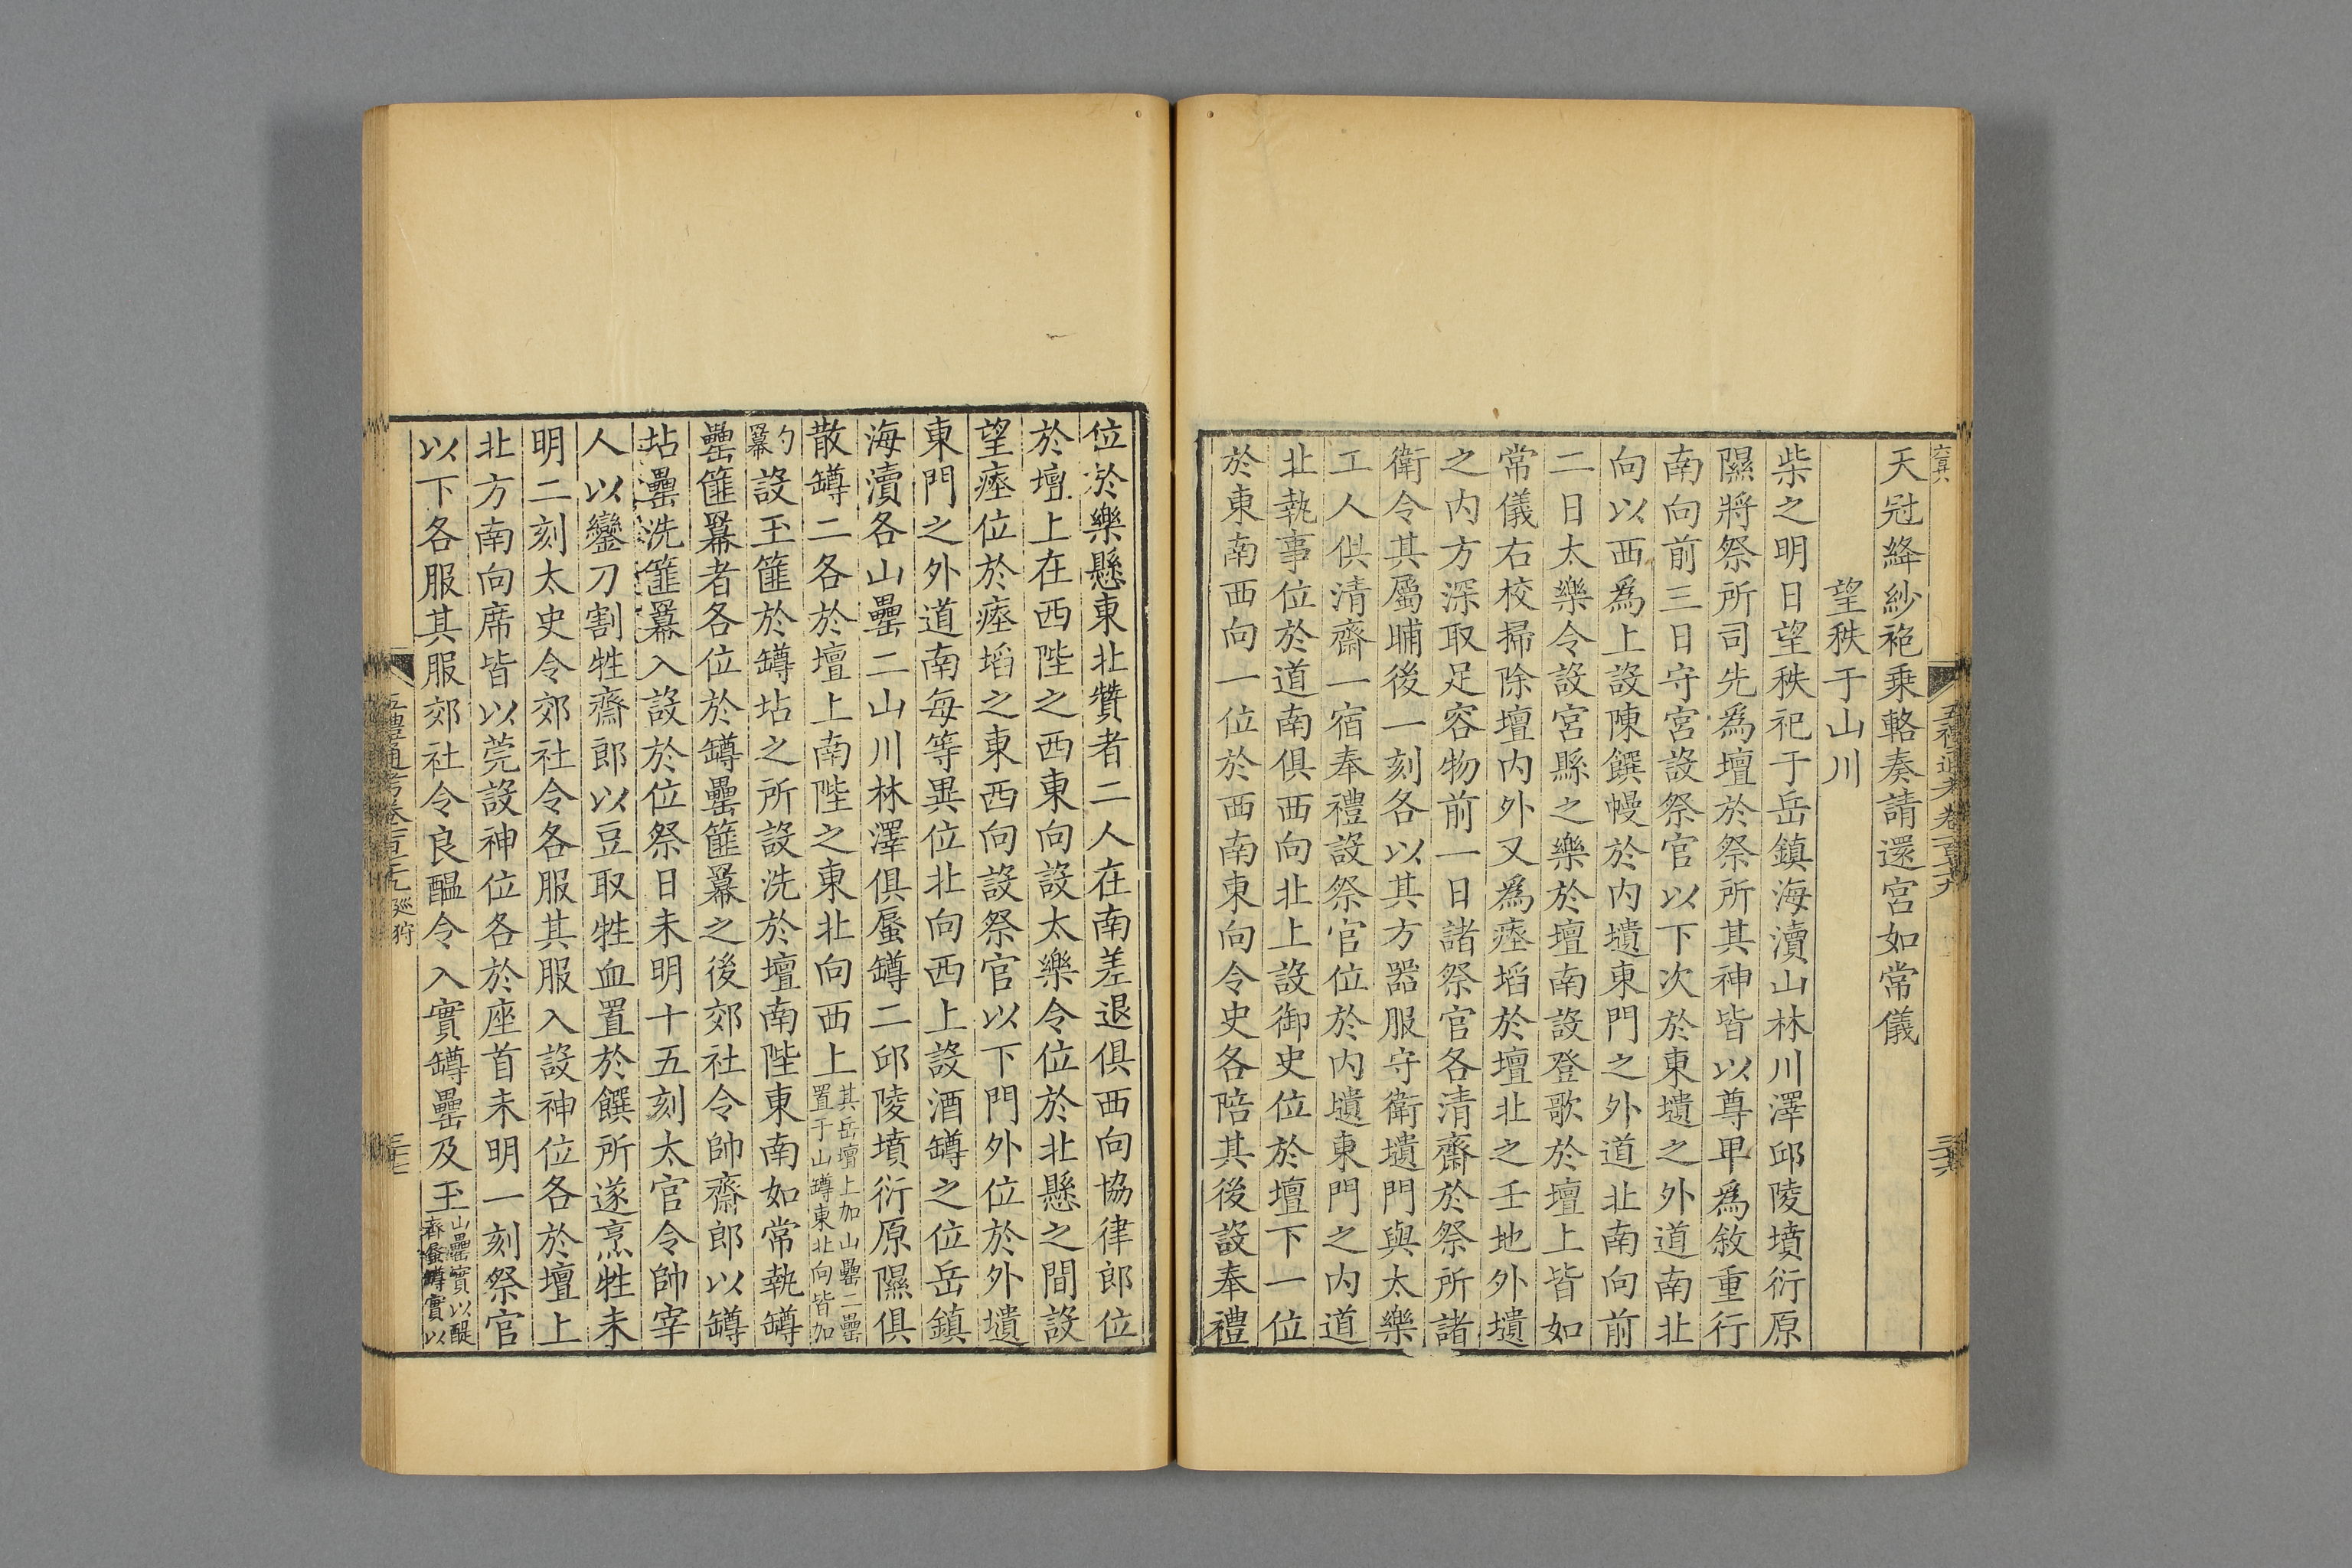 天冠絳紗袍乗輅奏請還宮如常儀
望秩于山川
柴之明日望秩祀于岳鎮海瀆山林川澤邱陵墳衍原
隰將祭所司先爲壇於祭所其神皆以尊卑爲敘重行
南向前三日守宮設祭官以下次於東壝之外道南北
向以西爲上設陳饌幔於內壝東門之外道北南向前
二日太樂令設宮縣之樂於壇南設登歌於壇上皆如
常儀右校掃除壇內外又爲瘞埳於壇北之壬地外壝
之內方深取足容物前一日諸祭官各清齋於祭所諸
衛令其屬晡後一刻各以其方器服守衛壝門與太樂
工人俱清齋一宿奉禮設祭官位於內壝東門之內道
北執事位於道南俱西向北上設御史位於壇下一位
於東南西向一位於西南東向令史各陪其後設奉禮
位於樂懸東北贊者二人在南差退俱西向協律郎位
於壇上在西陛之西東向設太樂令位於北懸之間設
望瘞位於瘞埳之東西向設祭官以下門外位於外壝
東門之外道南每等異位北向西上設酒罇之位岳鎮
海瀆各山罍二山川林澤俱蜃罇二邱陵墳衍原隰俱
散罇二各於壇上南陛之東北向西上其岳壇上加山罍二罍
置于山罇東北向皆加
勺
羃設玉篚於罇坫之所設洗於壇南陛東南如常執罇
罍篚羃者各位於罇罍篚羃之後郊社令帥齋郎以罇
坫罍洗篚羃入設於位祭日未明十五刻太官令帥宰
人以鑾刀割牲齋郎以豆取牲血置於饌所遂烹牲未
明二刻太史令郊社令各服其服入設神位各於壇上
北方南向席皆以莞設神位各於座首未明一刻祭官
以下各服其服郊社令良醞令入實罇罍及玉山罍實以醍
齊蜃罇實以
五禮通考卷一百七十九 巡狩
三十七